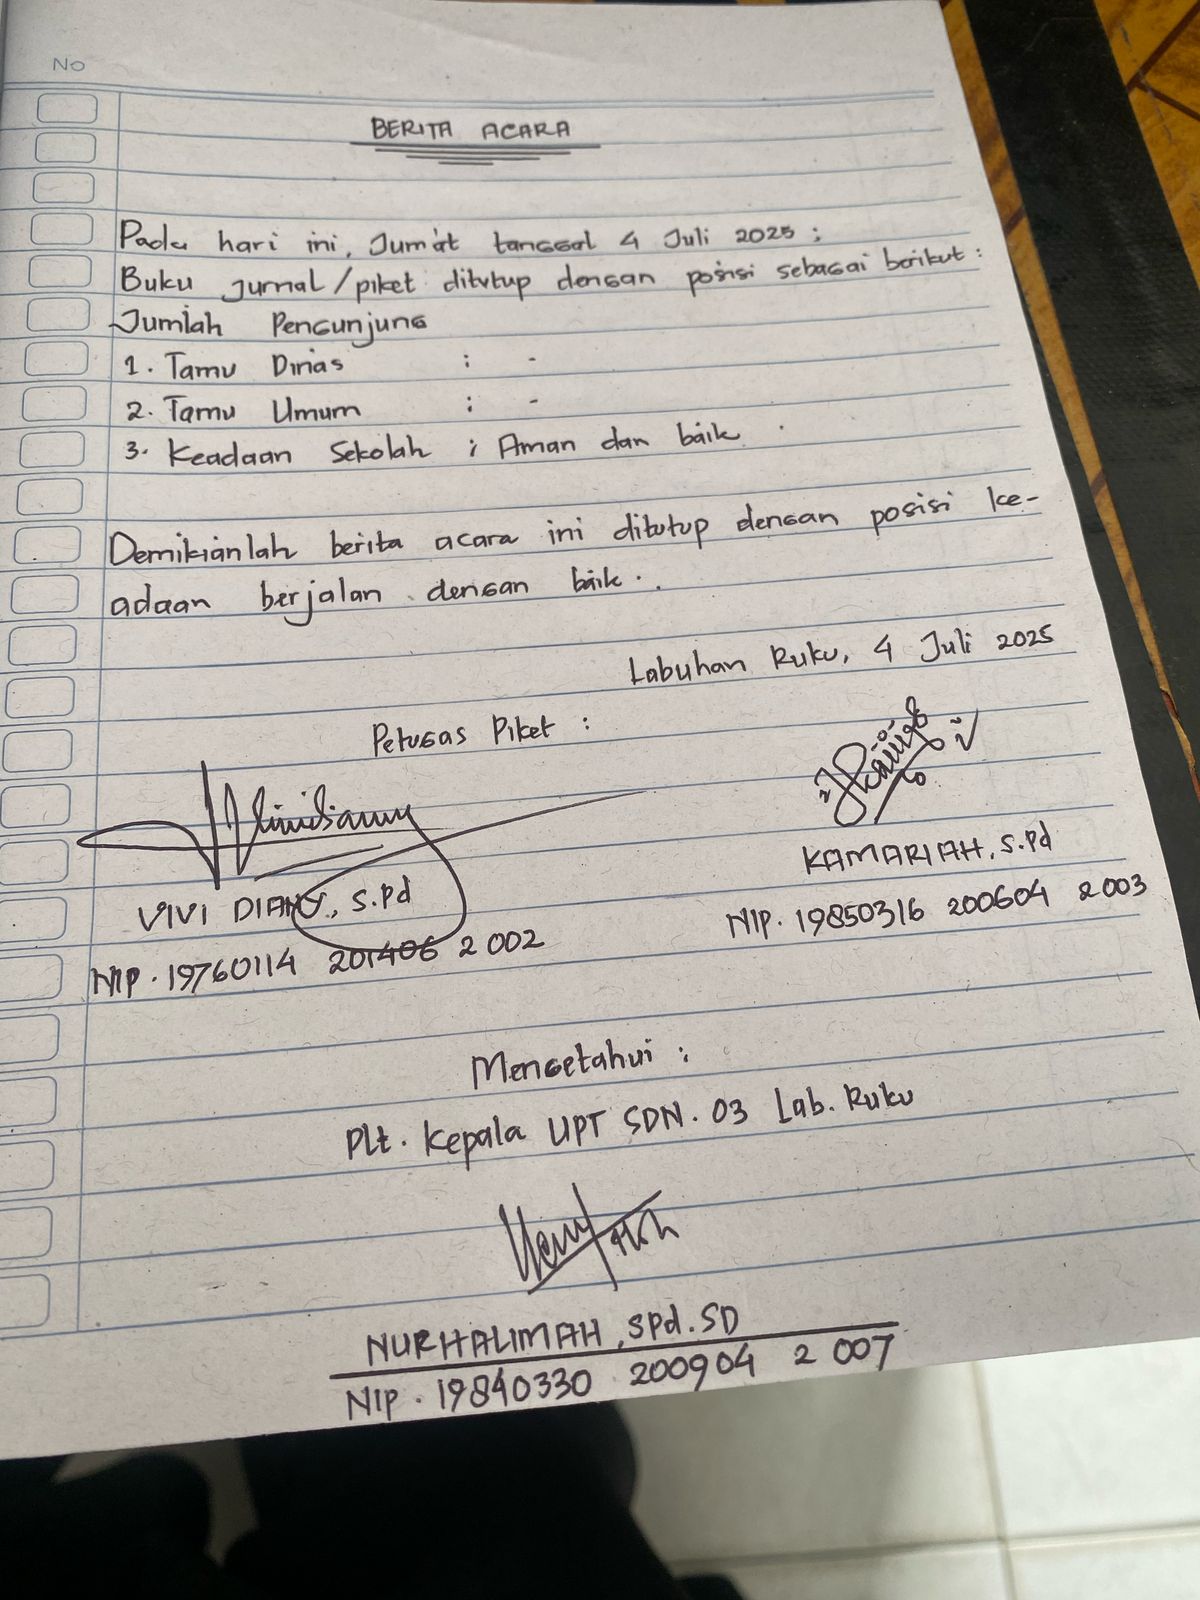 No
BERITA ACARA
Pada hari ini, Jum'at tanggal 4 Juli 2025 ;
Buku Jurnal/piket ditutup dengan posisi sebagai berikut :
Jumlah Pengunjung
1. Tamu Dinas : -
2. Tamu Umum : -
3. Keadaan Sekolah ; Aman dan baik .
Demikianlah berita acara ini ditutup dengan posisi ke-
adaan berjalan dengan baik . .
Labuhan Ruku, 4 Juli 2025
Petugas Piket :
VIVI DIANY, S.Pd KAMARIAH, S.Pd
NIP. 19760114 201406 2 002 NIP. 19850316 200604 2 003
Mengetahui :
Plt. Kepala UPT SDN. 03 Lab. Ruku
NURHALIMAH, SPd. SD
NIP. 19840330 200904 2 007